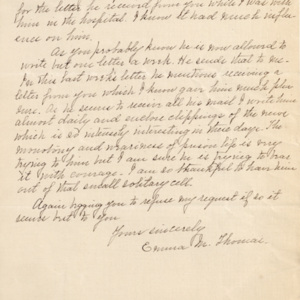 for the letter he received from you while I was with
him in the hospital. I know it had much influ-
ence on him.
As you probably know he is now allowed to
write but one letter a week. He sends that to me.
In this last weeks letter he mentions receiving a
letter from you which I know gave him much plea
sure. As he seems to receive all his mail I write him
almost daily and enclose clippings of the news
which is so intensely interesting in these days. The
monotony and weariness of prison life is very
trying to him but I am sure he is trying to bear
it with courage. I am so thankful to have him
out of that small solitary cell.
Again urging you to refuse my request if so it
seems best to you
Yours sincerely
Emma M. Thomas.